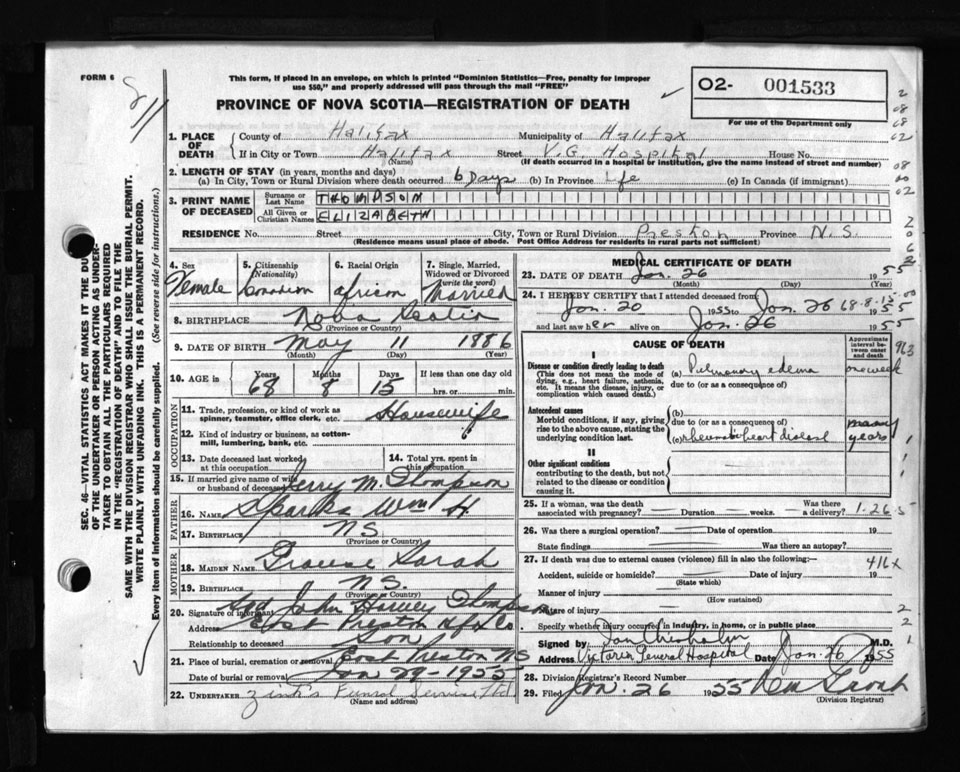 FORM 6
8/11
This form, if placed in an envelope, on which is printed "Dominion Statistics—Free, penalty for improper
use $50," and properly addressed will pass through the mail "FREE"
PROVINCE OF NOVA SCOTIA—REGISTRATION OF DEATH
O2- 001533
For use of the Department only
1. PLACE OF DEATH
County of Halifax Municipality of Halifax
If in City or Town Halifax Street V.G. Hospital House No.
(Name) (If death occurred in a hospital or institution, give the name instead of street and number)
2. LENGTH OF STAY (in years, months and days)
(a) In City, Town or Rural Division where death occurred 6 Days (b) In Province Life (c) In Canada (if immigrant)
3. PRINT NAME OF DECEASED
Surname or Last Name THOMPSON
All Given or Christian Names ELIZABETH
RESIDENCE No. Street City, Town or Rural Division Preston Province N.S.
(Residence means usual place of abode. Post Office Address for residents in rural parts not sufficient)
4. Sex Female
5. Citizenship (Nationality) Canadian
6. Racial Origin African
7. Single, Married, Widowed or Divorced (write the word) Married
8. BIRTHPLACE Nova Scotia
(Province or Country)
9. DATE OF BIRTH May 11 1886
(Month) (Day) (Year)
10. AGE in Years Months Days If less than one day old
68 8 15 hrs. or min.
OCCUPATION
11. Trade, profession, or kind of work as spinner, teamster, office clerk, etc. Housewife
12. Kind of industry or business, as cotton-mill, lumbering, bank, etc.
13. Date deceased last worked at this occupation
14. Total yrs. spent in this occupation
15. If married give name of wife or husband of deceased Jerry M. Thompson
FATHER
16. NAME Sparks Wm H
17. BIRTHPLACE NS
(Province or Country)
MOTHER
18. MAIDEN NAME Sarah
19. BIRTHPLACE NS.
(Province or Country)
20. Signature of informant John Harvey Thompson
Address East Preston Hfx Co
Relationship to deceased Son
21. Place of burial, cremation or removal East Preston NS
Date of burial or removal Jan 29-1955
22. UNDERTAKER Funeral Service Ltd
(Name and address)
MEDICAL CERTIFICATE OF DEATH
23. DATE OF DEATH Jan. 26 1955
(Month) (Day)
24. I HEREBY CERTIFY that I attended deceased from
Jan. 20 1955 to Jan. 26 1955
68-8-15-00
and last saw her alive on Jan. 26 1955
CAUSE OF DEATH
Approximate interval between onset and death
963
I
Disease or condition directly leading to death
(This does not mean the mode of dying, e.g., heart failure, asthenia, etc. It means the disease, injury, or complication which caused death.)
(a) Pulmonary edema one week
due to (or as a consequence of)
Antecedent causes
Morbid conditions, if any, giving rise to the above cause, stating the underlying condition last.
(b)
due to (or as a consequence of)
(c) rheumatic heart disease many years
II
Other significant conditions
contributing to the death, but not related to the disease or condition causing it.
25. If a woman, was the death associated with pregnancy? Duration weeks. Was there a delivery?
1-26-5
26. Was there a surgical operation? Date of operation 19
State findings Was there an autopsy?
27. If death was due to external causes (violence) fill in also the following:—
416X
Accident, suicide or homicide? Date of injury 19
(State which)
Manner of injury
(How sustained)
Nature of injury
Specify whether injury occurred in industry, in home, or in public place
Signed by M.D.
Address Victoria General Hospital Date Jan. 26 1955
28. Division Registrar's Record Number
29. Filed Jan. 26 1955
(Division Registrar)
SEC. 46—VITAL STATISTICS ACT MAKES IT THE DUTY
OF THE UNDERTAKER OR PERSON ACTING AS UNDER-
TAKER TO OBTAIN ALL THE PARTICULARS REQUIRED
IN THE "REGISTRATION OF DEATH" AND TO FILE THE
SAME WITH THE DIVISION REGISTRAR WHO SHALL ISSUE THE BURIAL PERMIT.
WRITE PLAINLY WITH UNFADING INK. THIS IS A PERMANENT RECORD.
Every item of information should be carefully supplied. (See reverse side for instructions.)